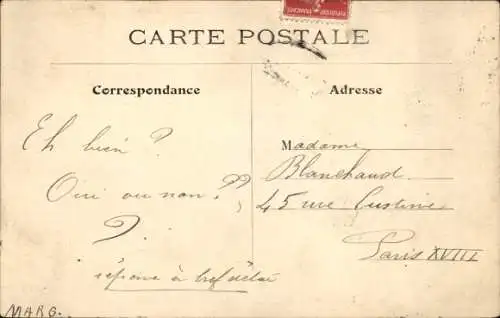 CARTE POSTALE
Correspondance
Adresse
Eh bien ?
Oui ou non ??
?.
réponse à bref délai
Madame
Blanchaud
45 rue Custine
Paris XVIII
MARG.